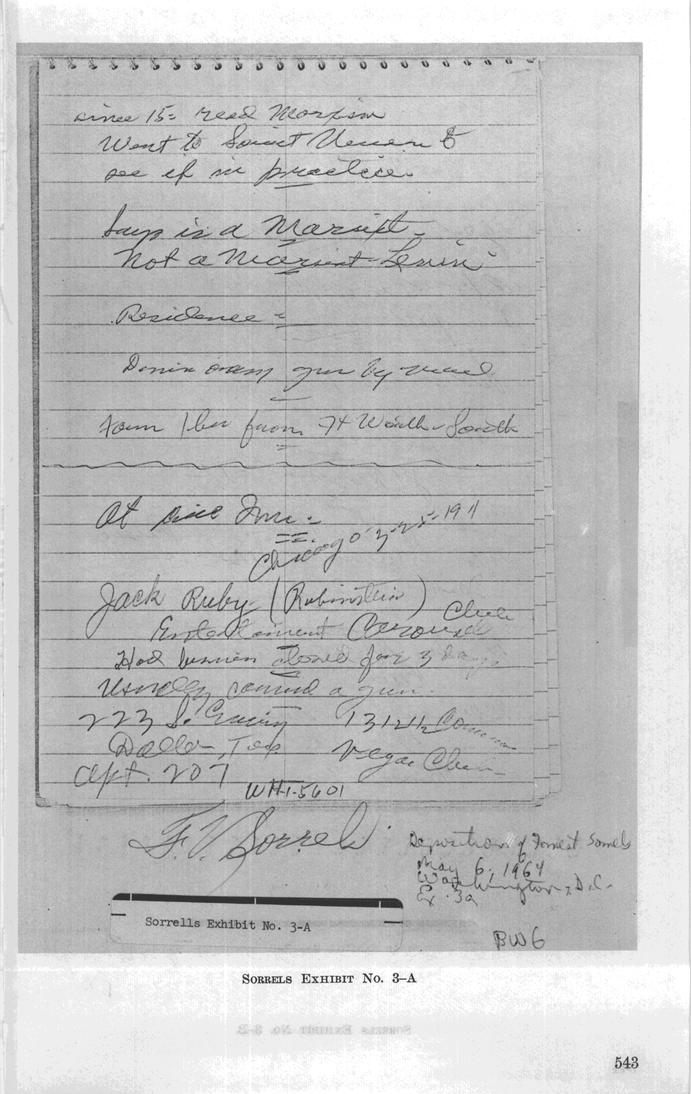 since 15= read Marxism
Went to Soviet Union to
see if in practice.
Says is a Marxist-
Not a Marxist-Lenin
Residence=
gun by
from Ft Worth - South
At time
Chicago 3-25-1911
Jack Ruby- (Rubinstein)
Entertainment Carousel Club
Had business closed for 3 days
Usually carried a gun.
223 S. Ewing 1312½ Commerce
Dallas, Tex Vegas Club
Apt. 207
WH1-5601
F. V. Sorrels
Deposition of Forrest Sorrels
May 6, 1964
Washington, D.C.
Ex. 3a
Sorrells Exhibit No. 3-A
BW6
SORRELS EXHIBIT NO. 3–A
543